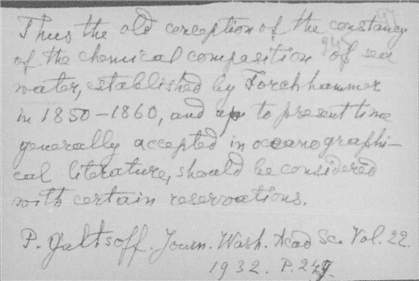 Thus the old conception of the constancy
of the chemical composition of sea
water, established by Forchhammer
in 1850-1860, and up to present time
generally accepted in oceanographi-
cal literature, should be considered
with certain reservations.
P. Galtsoff. Journ. Wash. Acad Sc. Vol. 22.
1932. P. 249.